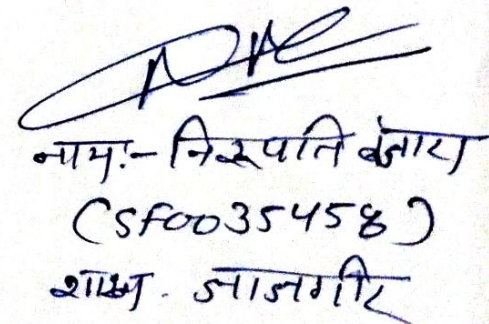 नामः- निरूपति बंजारा
(SF0035458)
शाखा - जाजगीर